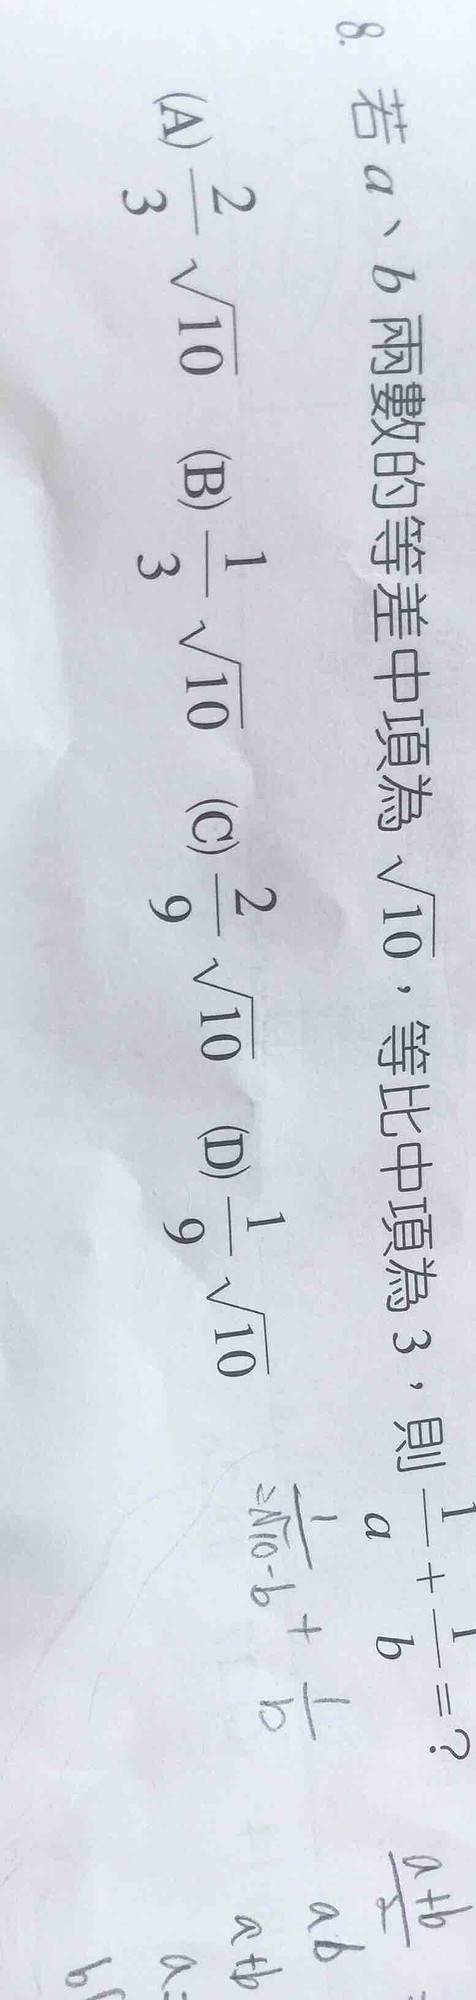 8. 若 a、b 兩數的等差中項為 √10，等比中項為 3，則 1/a + 1/b = ?
(A) 2/3 √10 (B) 1/3 √10 (C) 2/9 √10 (D) 1/9 √10
1/(2√10-b) + 1/b
(a+b)/2 =
ab
a+b
a=
b(